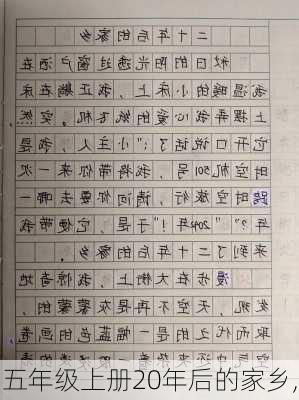 二十年后的家乡
秋日的阳光透过窗户洒在
我温暖的小床上，我正躺在床
上摆弄我心爱的纸飞机。突然
它开口说话了："小主人，我是
时空机501号，我将带你来一次
时空旅行，请问你要去哪一
年？""2041年！"于是，它便带我
来到了二十年后的家乡。
漫步在大街上，我惊奇地
发现，天空不再是灰蒙蒙的，
取而代之的是一幅蓝色的画卷
五年级上册20年后的家乡,